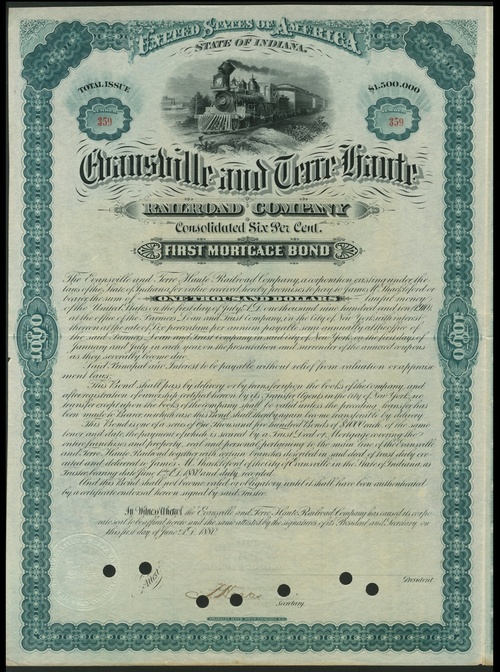 UNITED STATES OF AMERICA
STATE OF INDIANA.
TOTAL ISSUE
$1,500,000
NUMBER
359
NUMBER
359
Evansville and Terre Haute
RAILROAD COMPANY
Consolidated Six Per Cent.
FIRST MORTGAGE BOND
The Evansville and Terre Haute Railroad Company, a corporation existing under the
laws of the State of Indiana, for value received hereby promises to pay to James M. Shackelford or
bearer the sum of ONE THOUSAND DOLLARS lawful money of
the United States on the first day of July, A.D. one thousand nine hundred and ten
at the office of the Farmers' Loan and Trust Company, in the City of New York, with interest
thereon at the rate of six per centum per annum payable semi-annually at the office of
the said Farmers' Loan and Trust Company in said City of New York, on the first days of
January and July in each year, on the presentation and surrender of the annexed coupons
as they severally become due.
Said Principal and Interest to be payable without relief from valuation or appraise
ment laws.
This Bond shall pass by delivery or by transfer upon the books of the company, and
after registration of ownership certified hereon by its Transfer Agents in the city of New York, no
transfer except upon the books of the company shall be valid unless the preceding transfer has
been made to Bearer in which case this Bond shall thereupon become transferable by delivery.
This Bond is one of a series of One Thousand five hundred Bonds of $1000 each of the same
tenor and date, the payment of which is secured by a Trust Deed or Mortgage covering the
entire franchises and property, real and personal, pertaining to the main line of the Evansville
and Terre Haute Railroad together with certain branches described in said deed of trust duly exe
cuted and delivered to James M. Shackelford of the city of Evansville in the State of Indiana, as
Trustee bearing date June 1st A.D. 1880 and duly recorded.
And this Bond shall not become valid or obligatory until it shall have been authenticated
by a certificate endorsed hereon signed by said Trustee.
In Witness Whereof the Evansville and Terre Haute Railroad Company has caused its corpo
rate seal to be affixed hereto and the same attested by the signatures of its President and Secretary on
this first day of June A.D. 1880.
Attest
President.
Secretary.
1000
1000